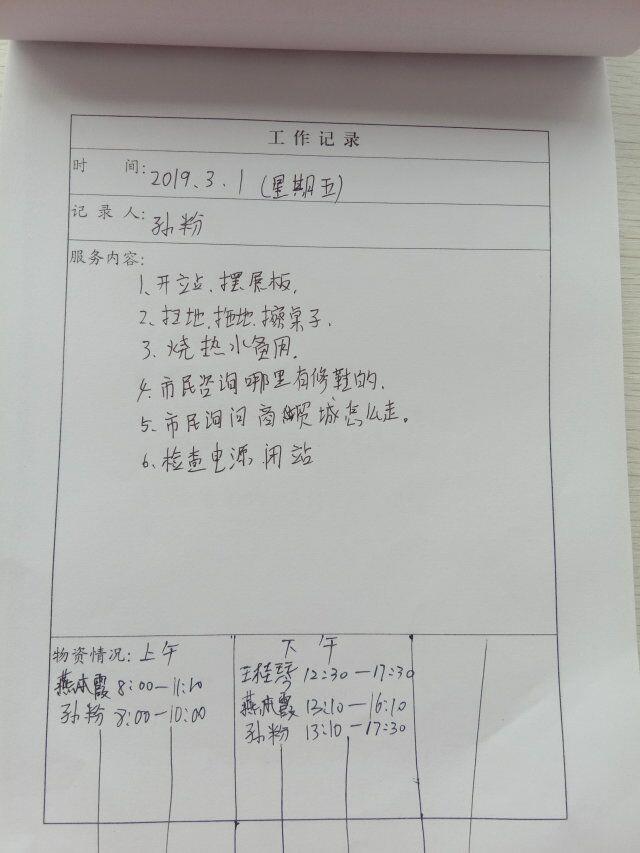 工作记录
时 间: 2019.3.1 (星期五)
记录人: 孙粉
服务内容:
1、开立站、摆展板,
2、扫地、拖地、擦桌子.
3、烧热水备用.
4.市民咨询哪里有修鞋的.
5、市民询问商贸城怎么走。
6、检查电源 闭站
物资情况: 上午
燕冰霞 8:00—11:10
孙粉 8:00—10:00
下午
王桂琴 12:30—17:30
燕冰霞 13:10—16:10
孙粉 13:10—17:30